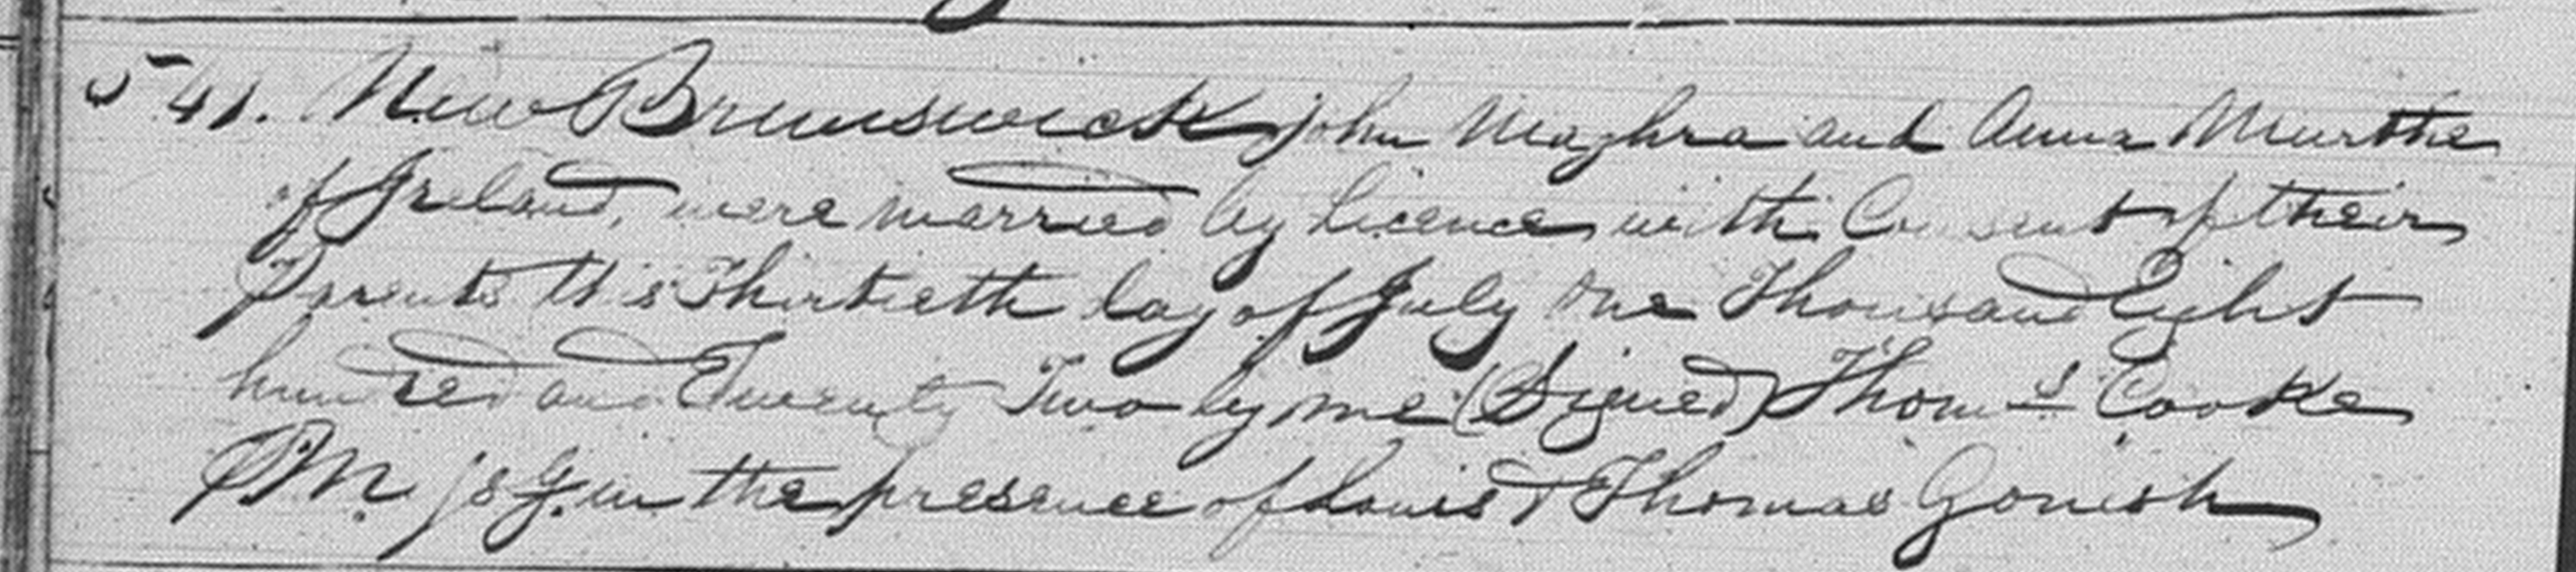 541. New Brunswick John Maghra and Anna Murthe
of Ireland, were married by Licence with Consent of their
Parents this Thirtieth day of July One Thousand Eight
hundred and Twenty Two by me (Signed) Thoms Cooke
P.M. in the presence of Louis & Thomas Gonish